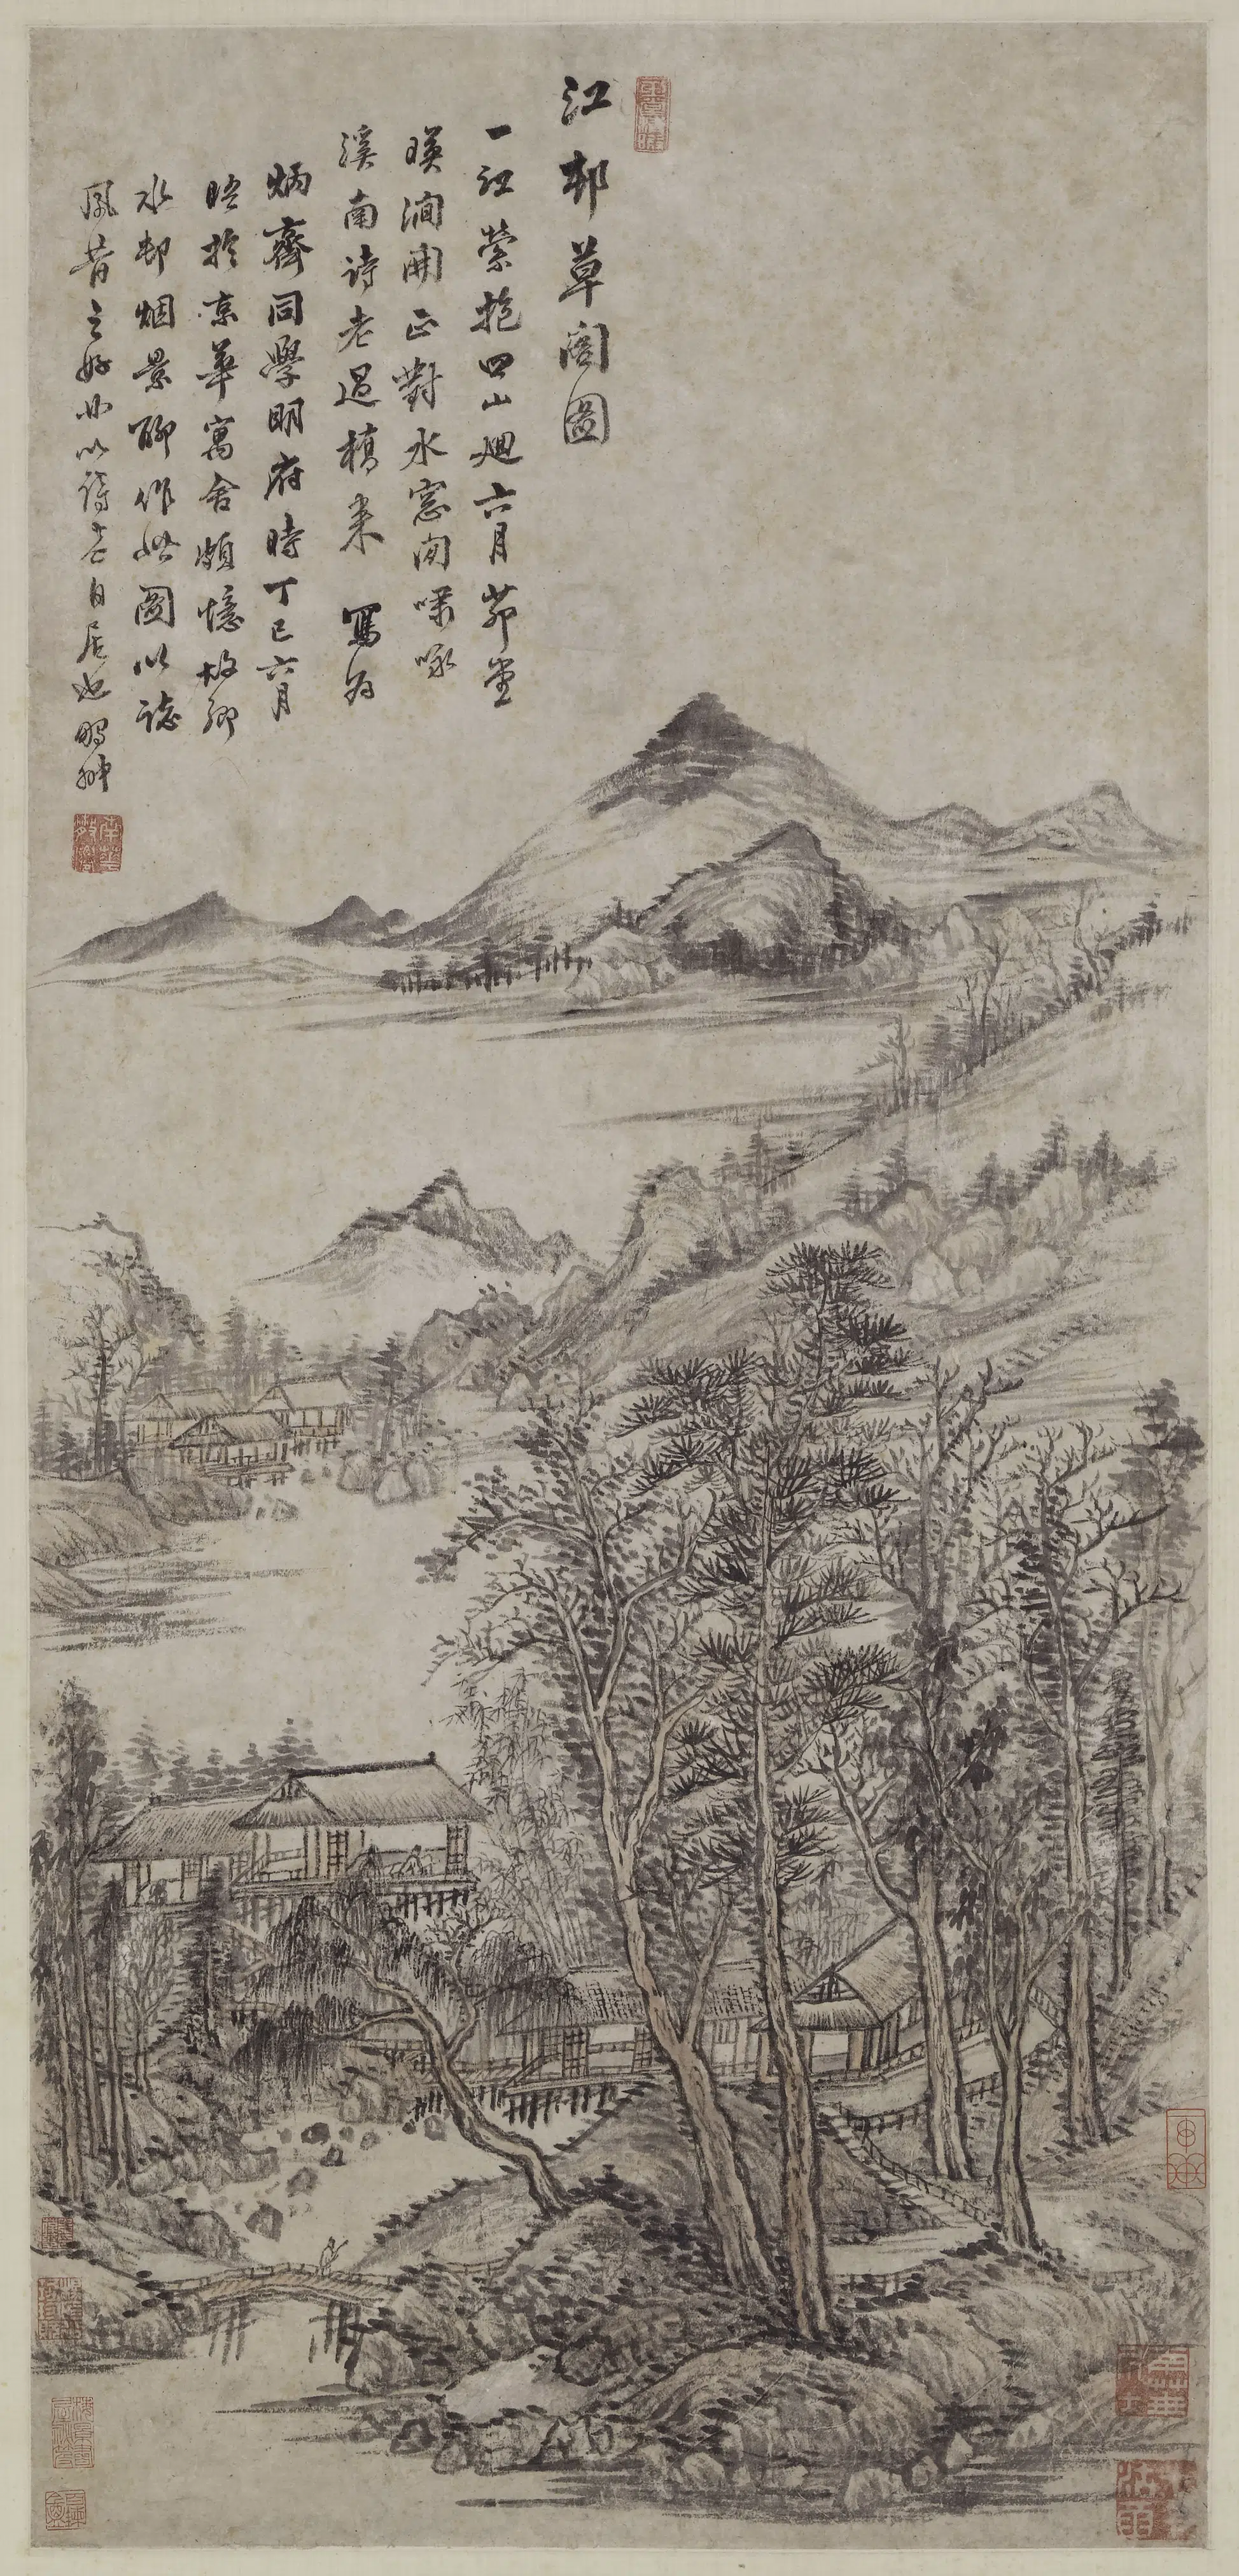 江邨草阁圖
一江縈抱四山迴六月茆堂
暎澗開正對水窓閒嘯咏
溪南诗老過橋来 寫为
炳齋同學明府時丁巳六月
晤於京華寓舍頗憶故鄉
水邨烟景聊作此圖以誌
夙昔之好廿以詩老自居也鸣